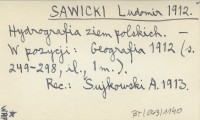 SAWICKI Ludomir 1912.
Hydrografia ziem polskich. —
W pozycji: Geografia 1912 (s.
249-298, il., 1 m.).
Rec.: Sujkowski A. 1913.
BT/003/1140